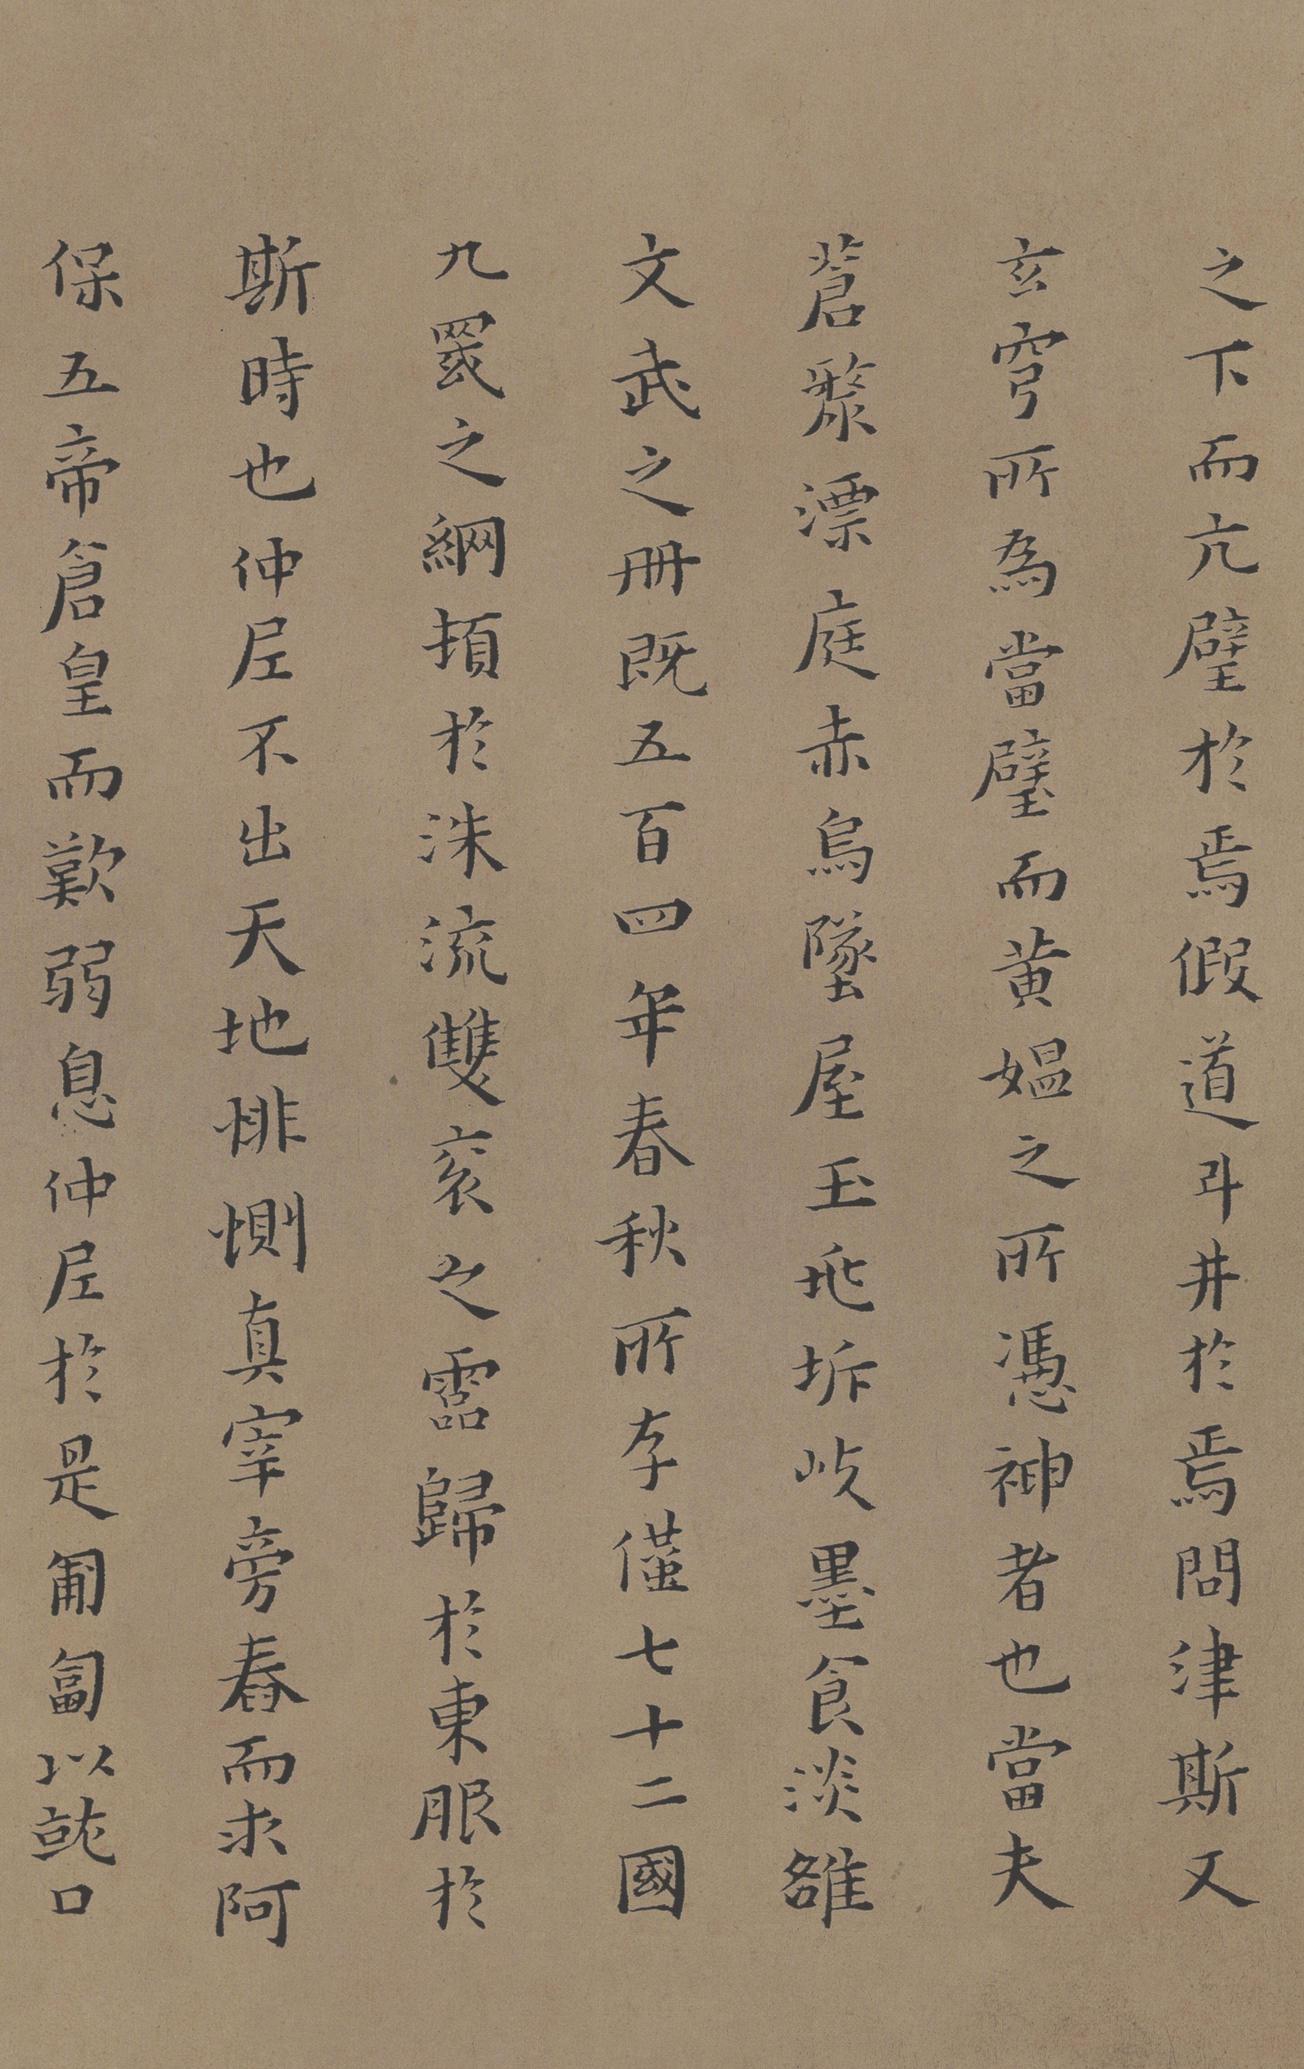 之下而亢璧於焉假道斗井於焉問津斯又
玄穹所為當璧而黃媼之所憑神者也當夫
蒼漦漂庭赤烏墜屋玉兆坼岐墨食淡雒
文武之冊既五百四年春秋所存僅七十二國
九罭之綱頓於洙流雙衮之靈歸於東服於
斯時也仲𡰥不出天地悱惻真宰旁舂而求阿
保五帝倉皇而歎弱息仲𡰥於是匍匐以就口